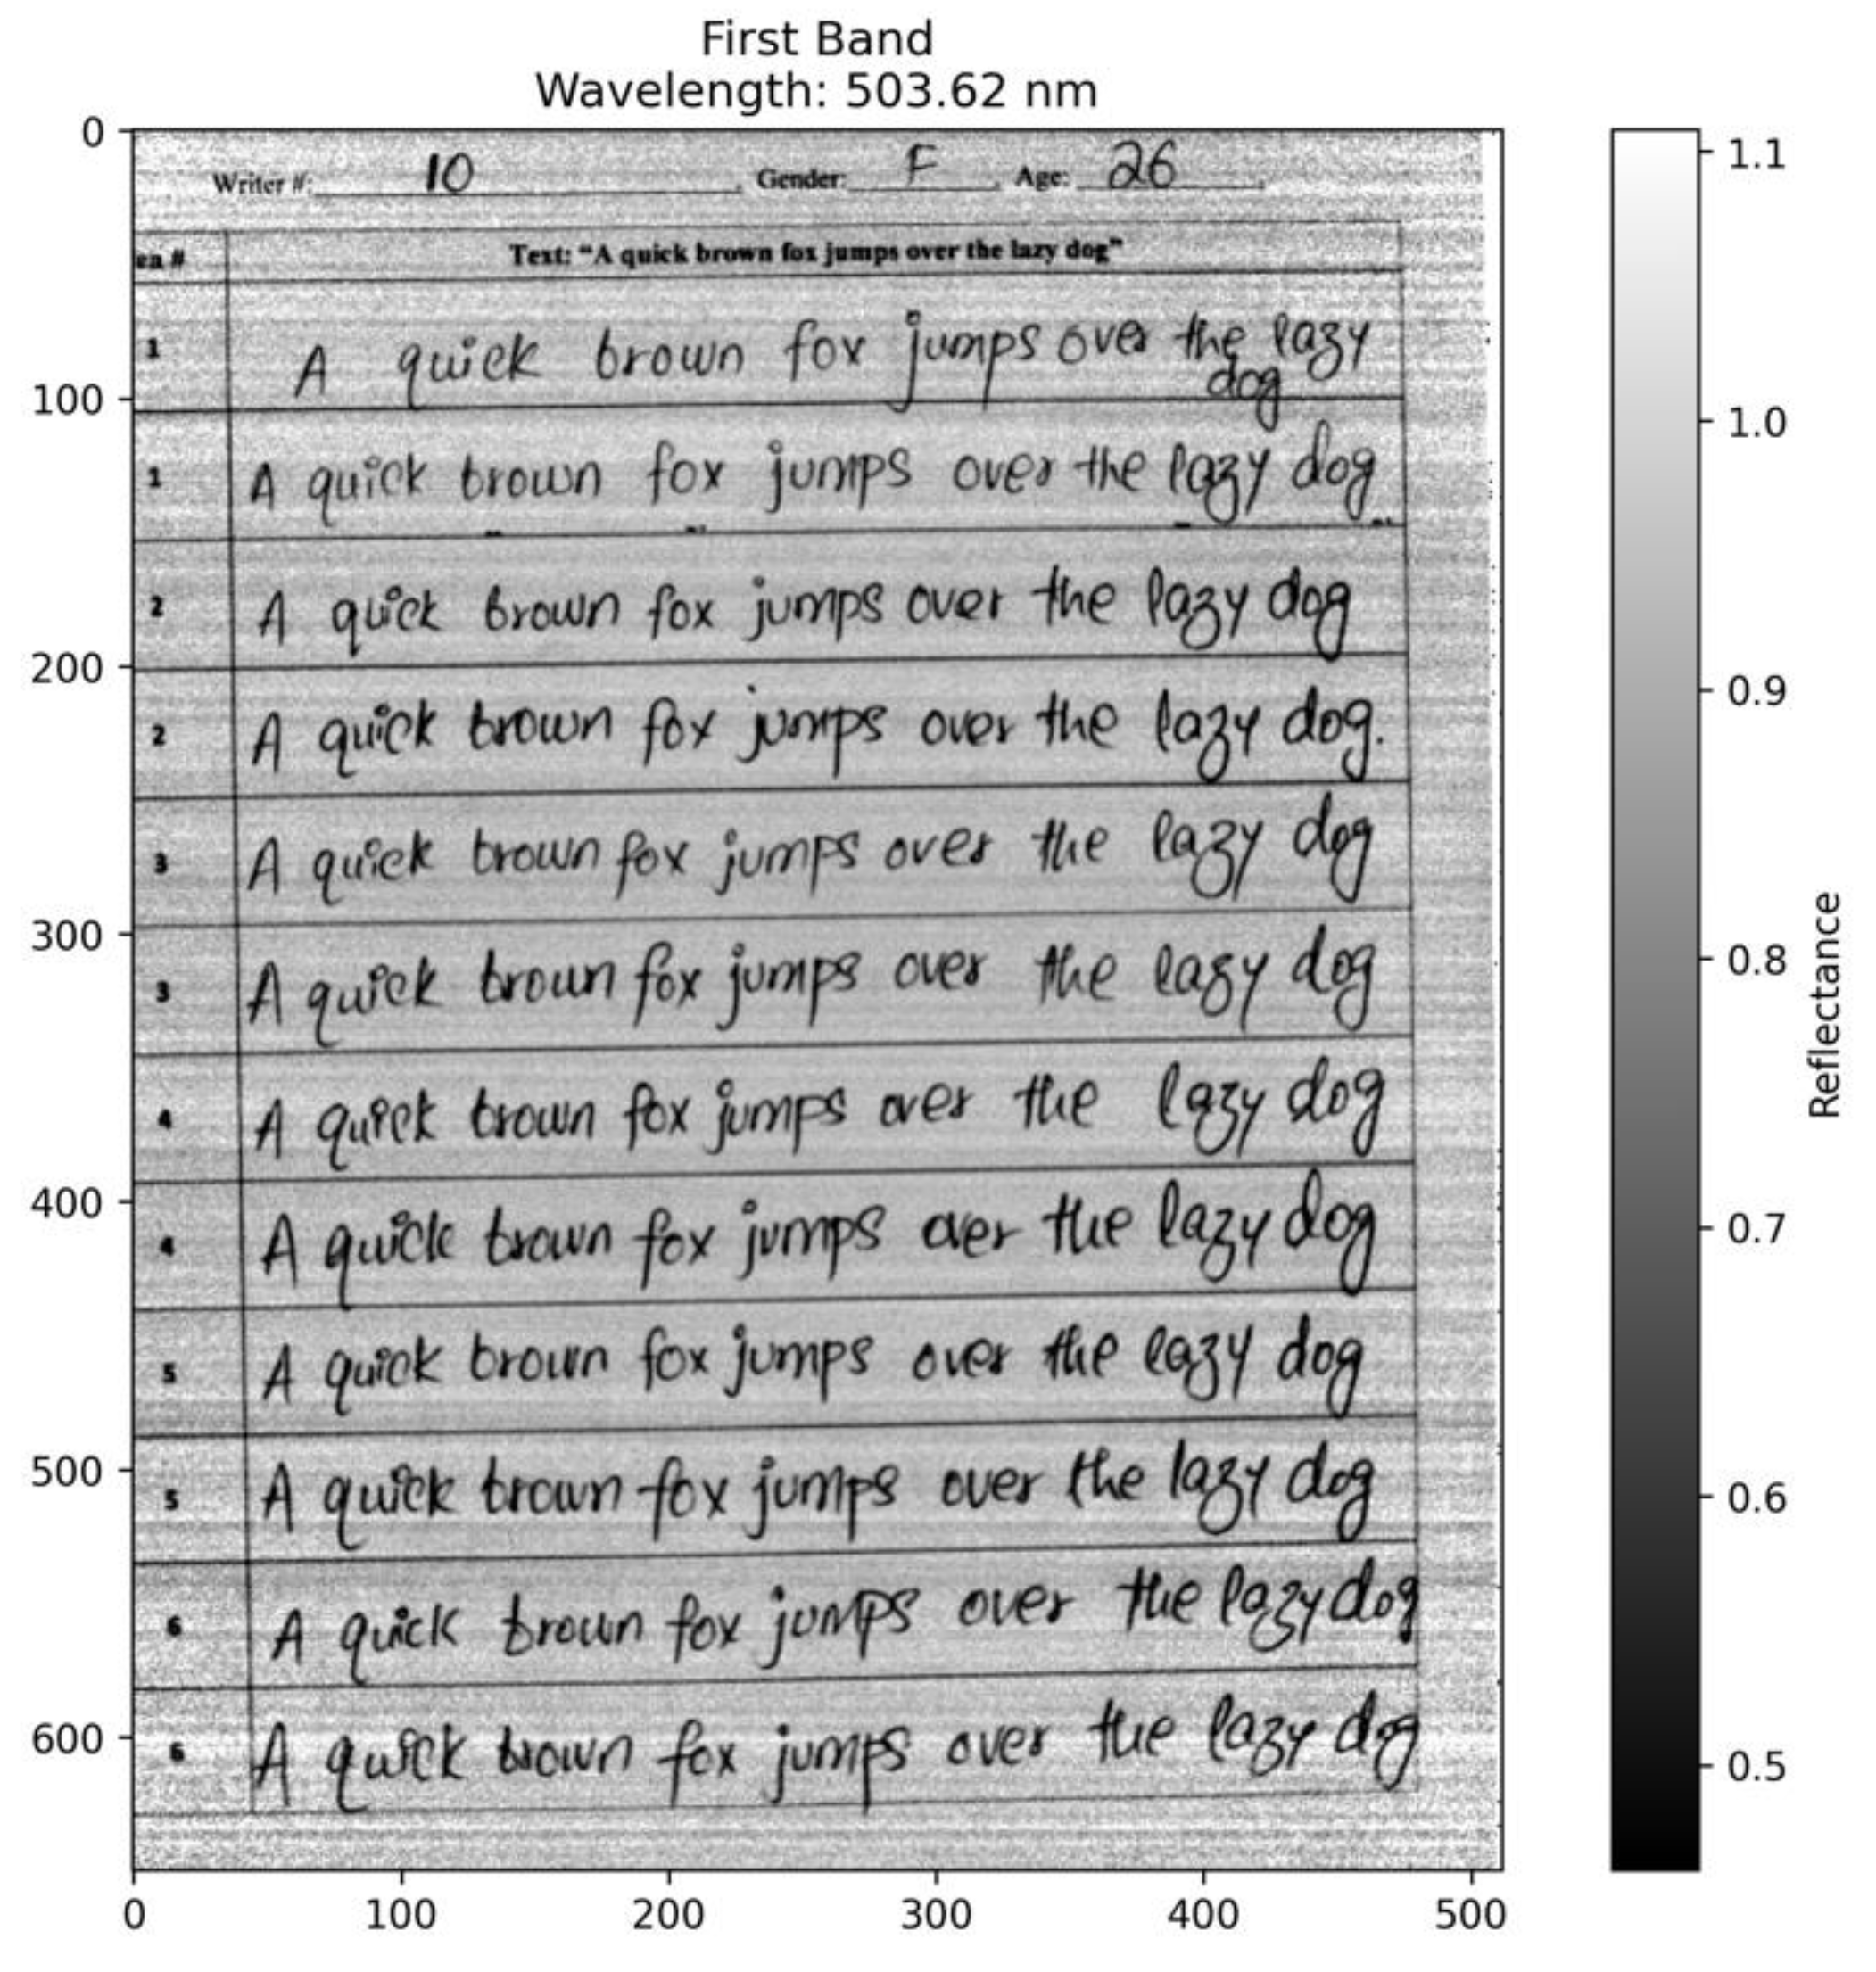 First Band
Wavelength: 503.62 nm
Writer #: 10 Gender: F Age: 26
en # Text: "A quick brown fox jumps over the lazy dog"
1 A quick brown fox jumps over the lazy
dog
1 A quick brown fox jumps over the lazy dog
2 A quick brown fox jumps over the lazy dog
2 A quick brown fox jumps over the lazy dog.
3 A quick brown fox jumps over the lazy dog
3 A quick brown fox jumps over the lazy dog
4 A quick brown fox jumps over the lazy dog
4 A quick brown fox jumps over the lazy dog
5 A quick brown fox jumps over the lazy dog
5 A quick brown fox jumps over the lazy dog
6 A quick brown fox jumps over the lazy dog
6 A quick brown fox jumps over the lazy dog
0
100
200
300
400
500
600
0 100 200 300 400 500
1.1
1.0
0.9
0.8
0.7
0.6
0.5
Reflectance